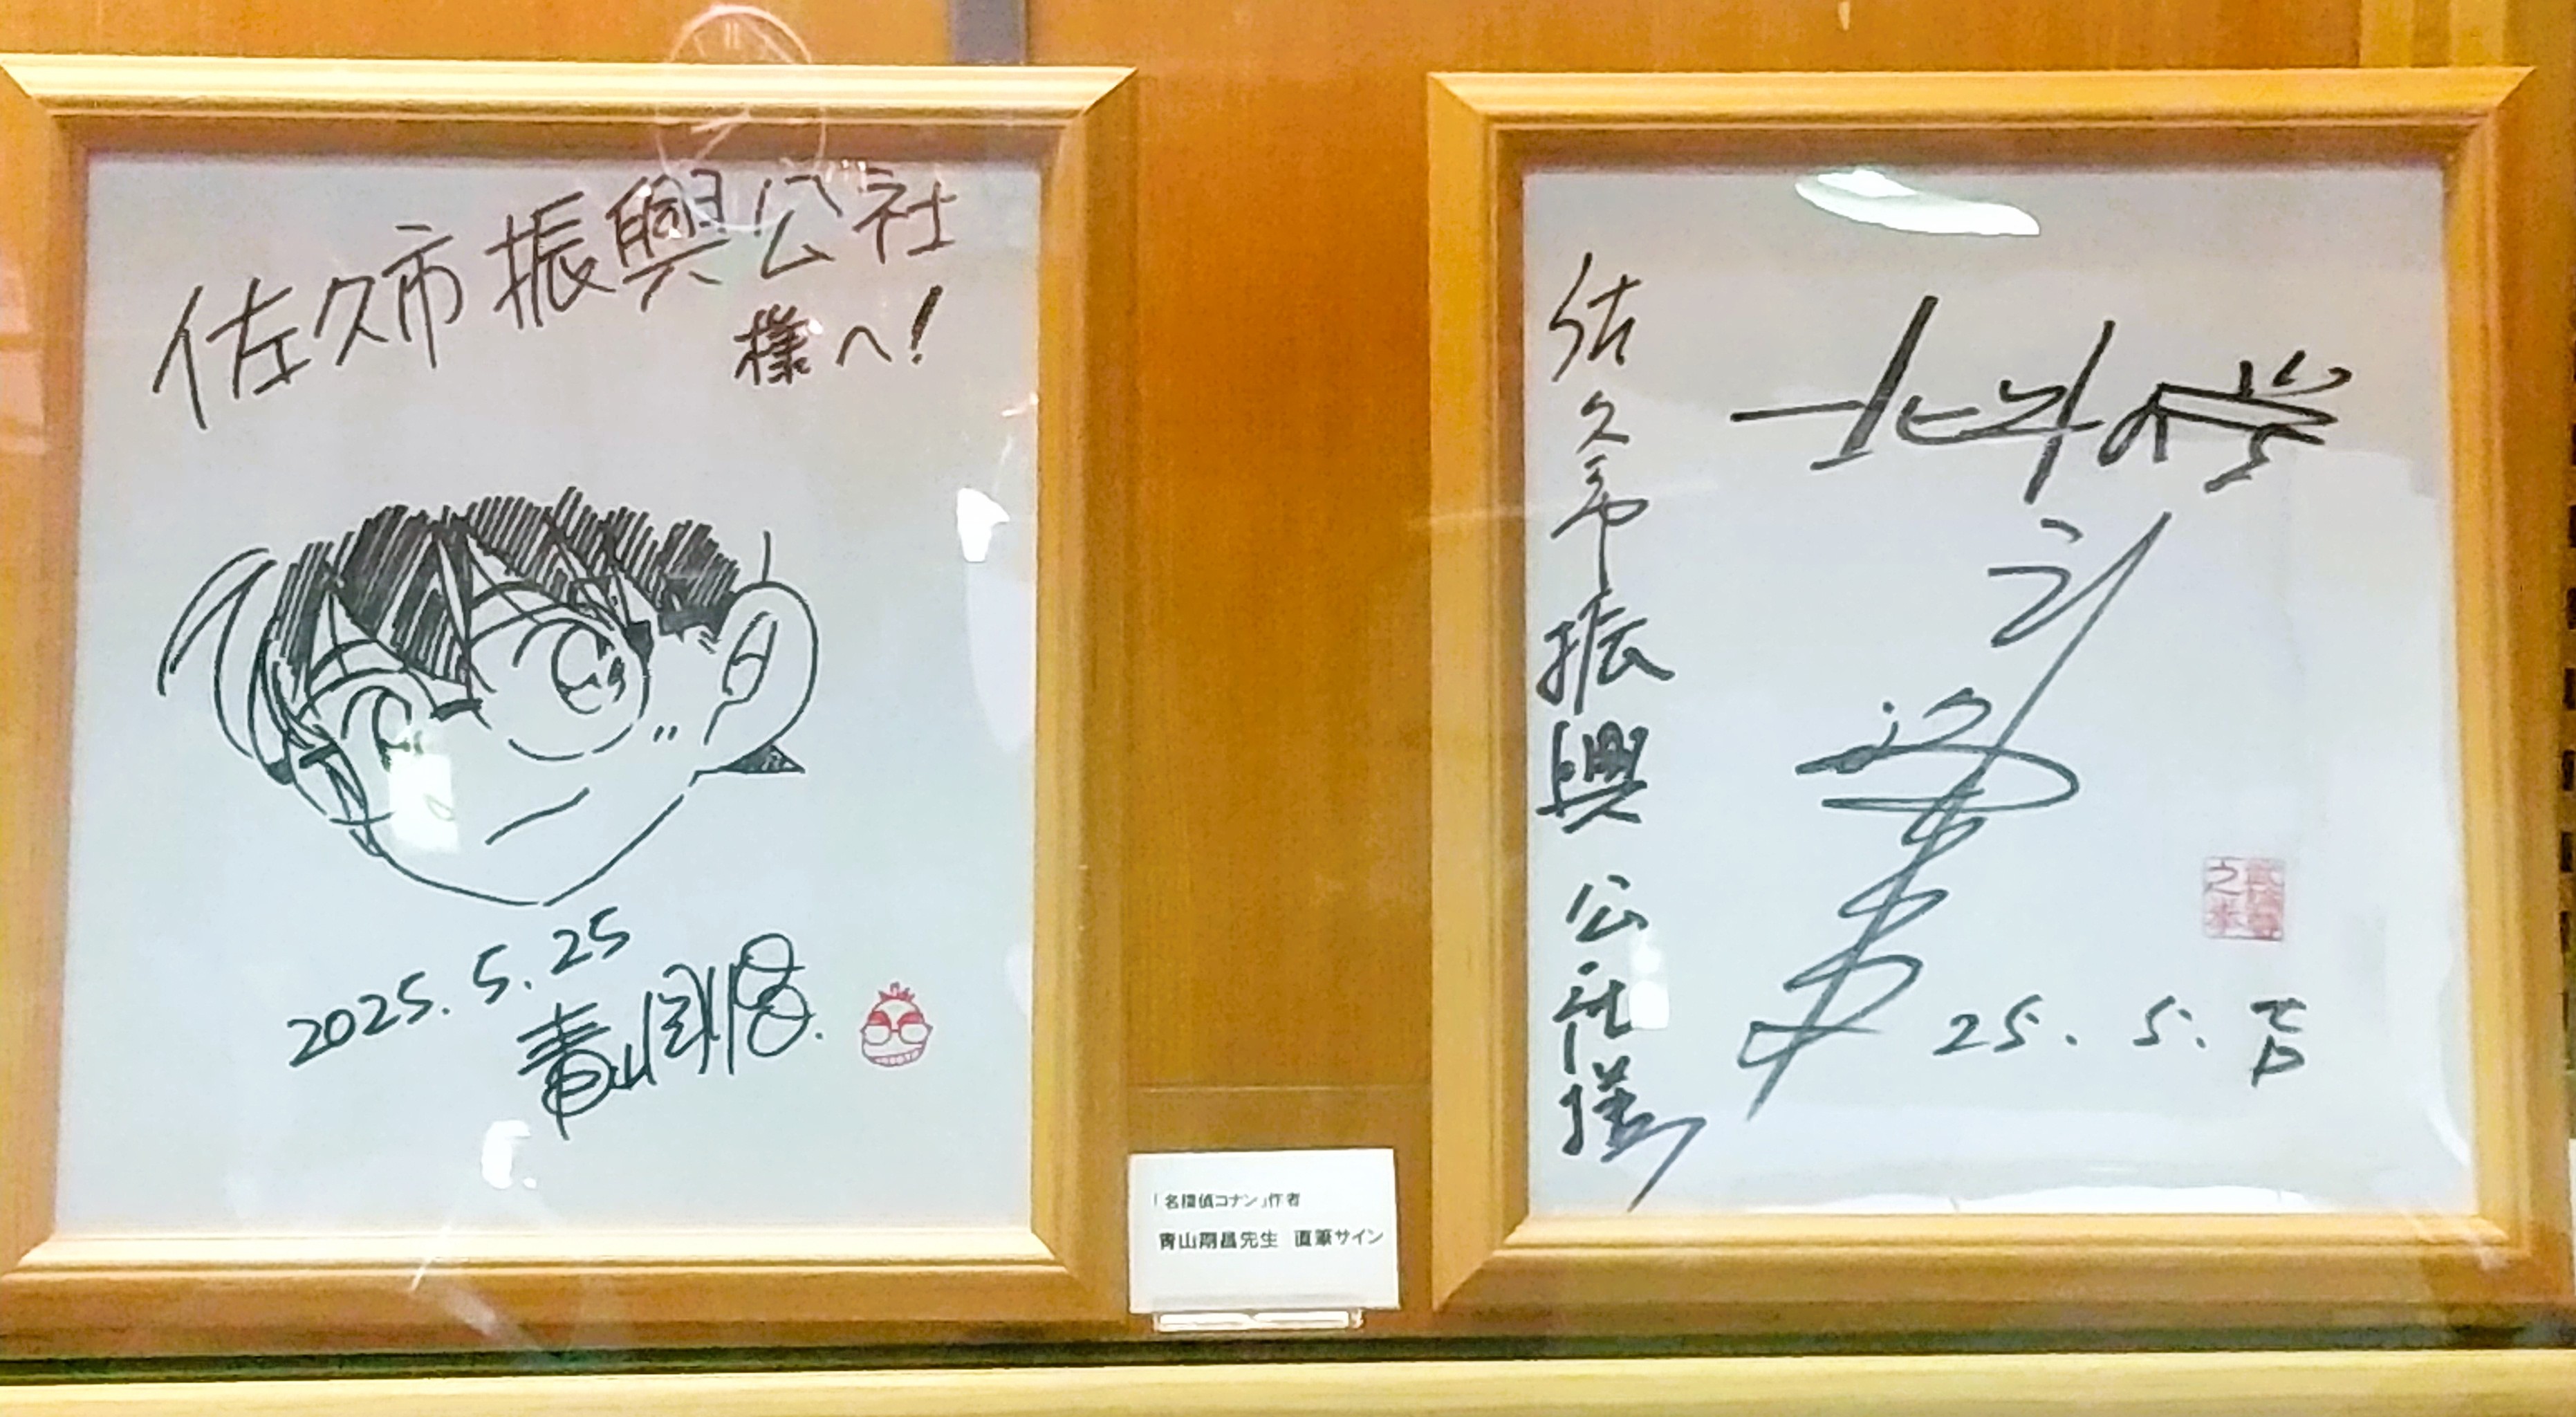 佐久市振興公社
様へ!
2025.5.25
青山剛昌
「名探偵コナン」作者
青山剛昌先生 直筆サイン
佐久市振興公社様
北斗の拳
25. 5. 吉